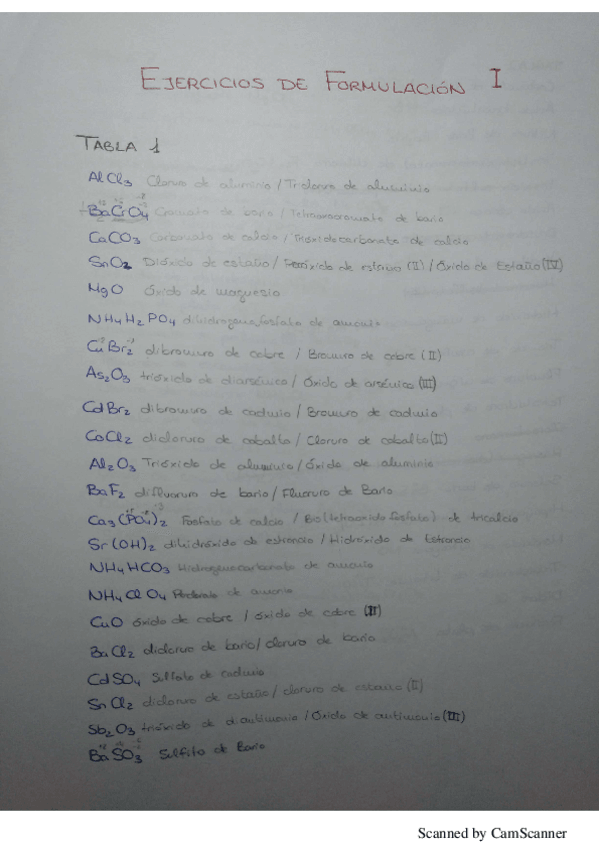 EJERCICIOS DE FORMULACIÓN I
TABLA 1
AlCl3 Cloruro de aluminio / Tricloruro de aluminio
BaCrO4 Cromato de bario / Tetraoxocromato de bario
CaCO3 Carbonato de calcio / Trióxidocarbonato de calcio
SnO2 Dióxido de estaño / Peróxido de estaño (II) / Óxido de Estaño (IV)
MgO óxido de magnesio
NH4H2PO4 dihidrogenofosfato de amonio
CuBr2 dibromuro de cobre / Bromuro de cobre (II)
As2O3 trióxido de diarsénico / Óxido de arsénico (III)
CdBr2 dibromuro de cadmio / Bromuro de cadmio
CoCl2 dicloruro de cobalto / Cloruro de cobalto (II)
Al2O3 Trióxido de aluminio / óxido de aluminio
BaF2 difluoruro de bario / Fluoruro de Bario
Ca3(PO4)2 Fosfato de calcio / Bis(tetraoxidofosfato) de tricalcio
Sr(OH)2 dihidróxido de estroncio / Hidróxido de Estroncio
NH4HCO3 Hidrogenocarbonato de amonio
NH4ClO4 Perclorato de amonio
CuO óxido de cobre / óxido de cobre (II)
BaCl2 dicloruro de bario / cloruro de bario
CdSO4 Sulfato de cadmio
SnCl2 dicloruro de estaño / cloruro de estaño (II)
Sb2O3 trióxido de diantimonio / Óxido de antimonio (III)
BaSO3 Sulfito de Bario
Scanned by CamScanner